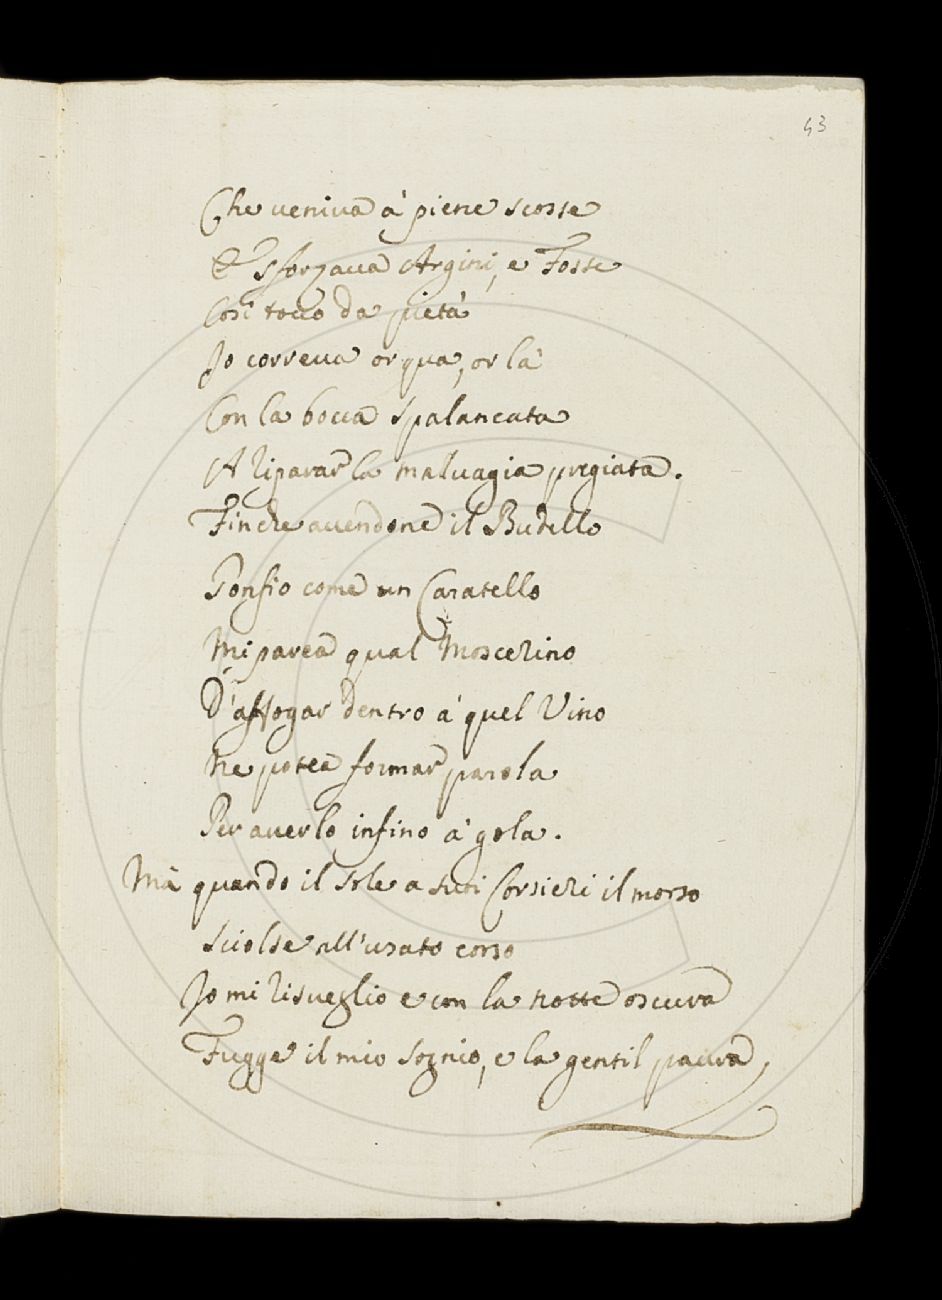 43
Che veniva à piene scosse
E sforzava Argini, e Fosse
Così tocco da pietà
Io correva or qua, or là
Con la bocca spalancata
A riparar la malvagia pregiata.
Finche avendone il Budello
Gonfio come un Caratello
Mi parea qual Moscerino
D'affogar dentro à quel Vino
Ne potea formar parola
Per averlo infino à gola.
Mà quando il sole a suoi Corsieri il morso
Sciolse all'usato corso
Io mi risveglio e con la notte oscura
Fugge il mio sognio, e la gentil paura,